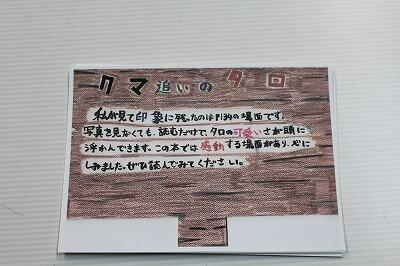 クマ追いのタロ
私が見て印象に残ったのはP134の場面です。
写真を見なくても、読むだけで、タロの可愛いさが頭に
浮かんできます。この本では感動する場面があり、心に
しみました。ぜひ読んでみてください。